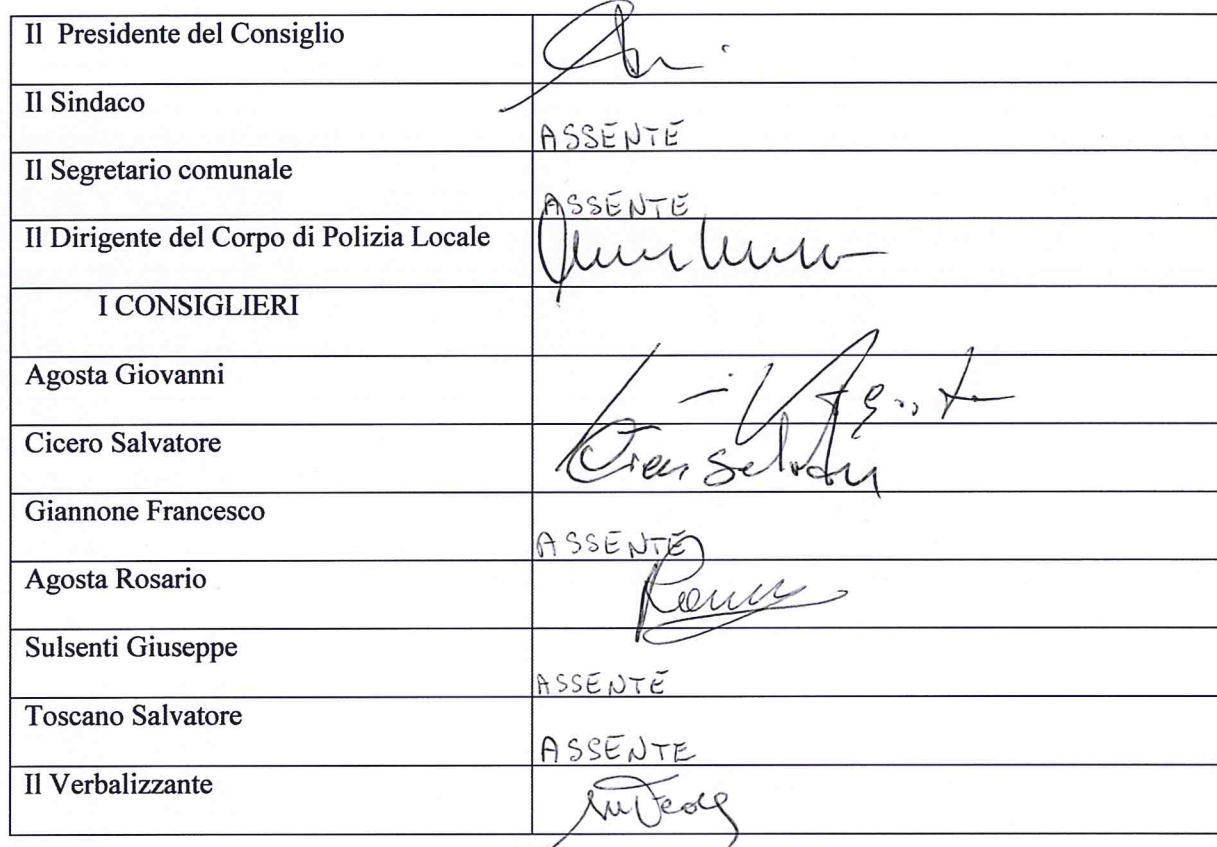 Il Presidente del Consiglio
Il Sindaco
ASSENTE
Il Segretario comunale
ASSENTE
Il Dirigente del Corpo di Polizia Locale
I CONSIGLIERI
Agosta Giovanni
Cicero Salvatore
Giannone Francesco
ASSENTE
Agosta Rosario
Sulsenti Giuseppe
ASSENTE
Toscano Salvatore
ASSENTE
Il Verbalizzante